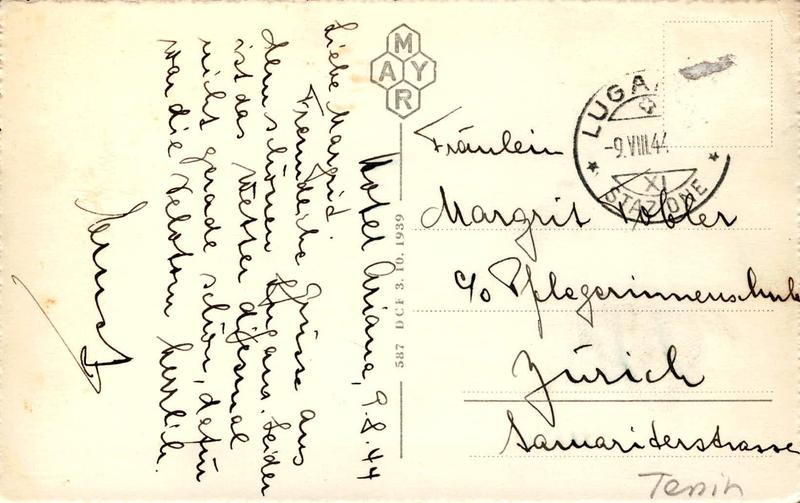 Hotel Ariana, 9.8.44
Liebe Margrit.
Freundliche Grüsse aus
dem schönen Lugano. Leider
ist das Wetter diesmal
nicht gerade schön, dafür
war die Velotour herrlich.
Ernst
MAYR
587 DCF 3. 10. 1939
LUGA
-9.VIII.44
XI
STAZIONE
Fräulein
Margrit Tobler
c/o Pflegerinnenschule
Zürich
Samariterstrasse
Tessin